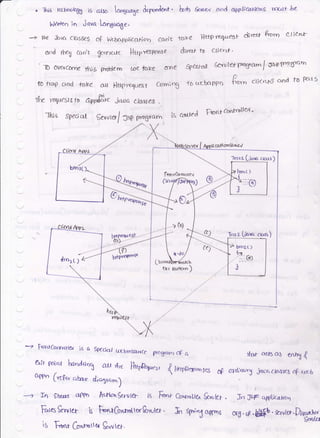 • This technology is also language dependent. both server and applications must be
written in Java language.
→ The Java classes of webapplication can't take Http request direct from client
and they can't generate Http response direct to client.
To overcome this problem we take one special Servlet program/ JSP program
to trap and take all Http request coming to webappn from client and to pass
the requests to Java classes.
This special Servlet/ JSP program is called Front Controller.
Web server / Application
client Apps
bm1()
Http request
Http response
Front Controller
Test1 (Java class)
bm1()
{
}
client Apps
bm2()
Http request
Http response
Test2 (Java class)
bm2()
{
}
http
request
→ Front Controller is a special web resource program of a that acts as entry &
exit point handling all the Http Request & Http Responses of ordinary java classes of web
appn (refer above diagram)
→ In Struts appn Action Servlet is Front Controller Servlet. In JSF application
Faces Servlet is Front Controller Servlet. In Spring appns Dispatcher
Servlet
is Front Controller Servlet.